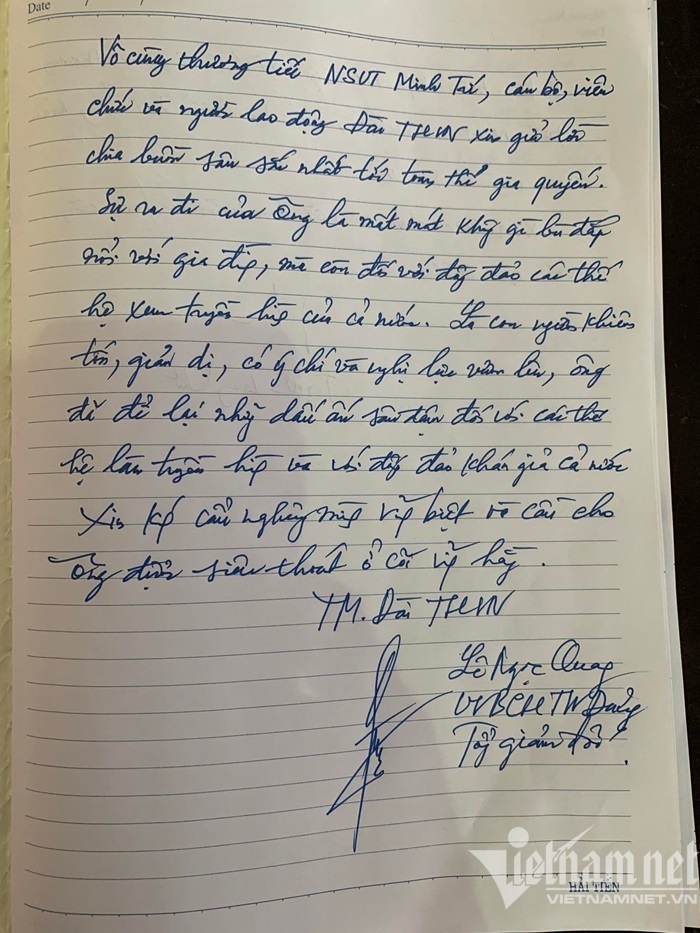 Date
Vô cùng thương tiếc NSUT Minh Trí, cán bộ, viên
chức và người lao động Đài THVN xin gửi lời
chia buồn sâu sắc nhất tới toàn thể gia quyến.
Sự ra đi của Ông là mất mát khg gì bù đắp
nổi với gia đình, mà còn đối với đông đảo các thế
hệ xem truyền hình của cả nước. Là con người khiêm
tốn, giản dị, có ý chí và nghị lực vươn lên, ông
đã để lại những dấu ấn sâu đậm đối với các thế
hệ làm truyền hình và với đông đảo khán giả cả nước
Xin kính cẩn nghiêng mình vĩnh biệt và cầu cho
Ông được siêu thoát ở cõi vĩnh hằng.
TM. Đài THVN
Lê Ngọc Quang
UVBCHTW Đảng
Tổng giám đốc
Vietnamnet
HẢI TIẾN
VIETNAMNET.VN